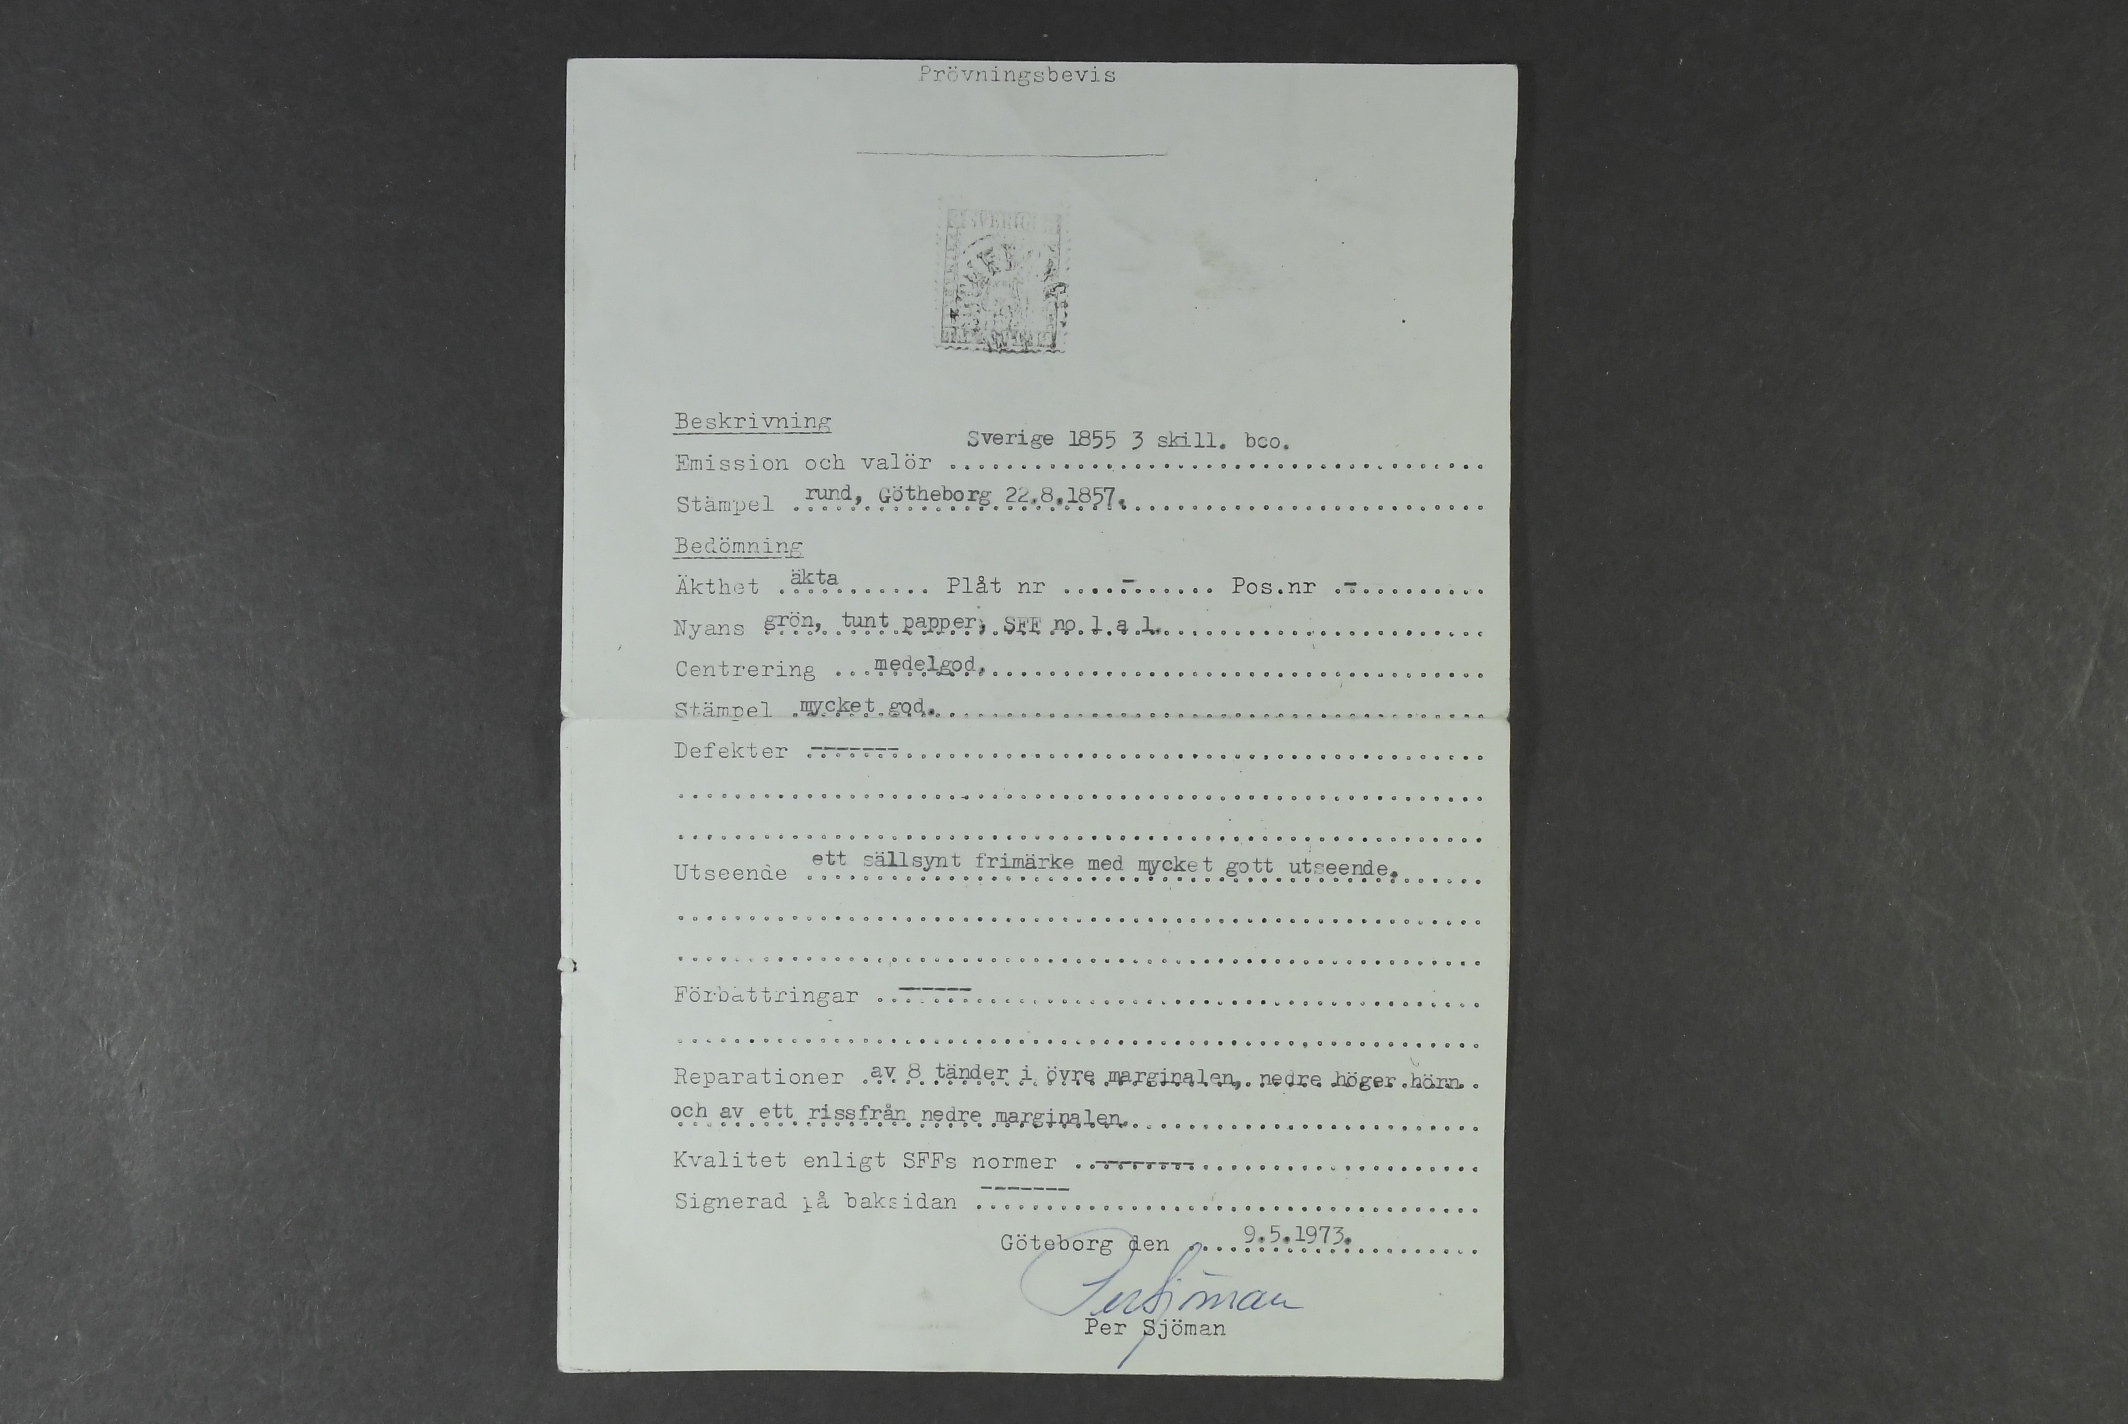 Prövningsbevis
SVERIGE
Beskrivning
Sverige 1855 3 skill. bco.
Emission och valör
Stämpel rund, Götheborg 22.8.1857.
Bedömning
Äkthet äkta Plåt nr - Pos.nr -
Nyans grön, tunt papper, SFF no 1 a 1.
Centrering medelgod.
Stämpel mycket god.
Defekter -------
Utseende ett sällsynt frimärke med mycket gott utseende.
Förbättringar -----
Reparationer av 8 tänder i övre marginalen, nedre höger hörn
och av ett rissfrån nedre marginalen.
Kvalitet enligt SFFs normer -------
Signerad på baksidan ------
Göteborg den 9.5.1973.
Per Sjöman
Per Sjöman